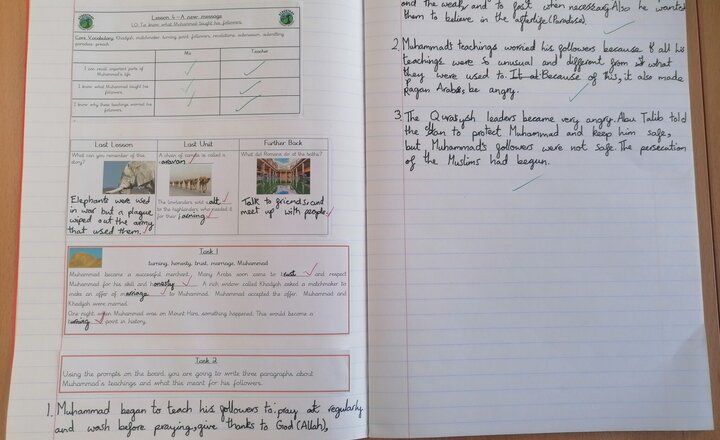 Lesson 4 - A new message
LO: To know what Muhammad taught his followers.
Core Vocabulary: Khadijah, matchmaker, turning point, followers, revelations, submission, submitting,
paradise, preach
Me
Teacher
I can recall important parts of
Muhammad's life.
I know what Muhammad taught his
followers.
I know why these teachings worried his
followers.
Last Lesson
What can you remember of this
story?
Elephants were used
in war but a plague
wiped out the army
that used them.
Last Unit
A chain of camels is called a
caravan
The lowlanders sold salt
to the highlanders who needed it
for their farming
Further Back
What did Romans do at the baths?
Talk to friends and
meet up with people.
Task 1
turning, honesty, trust, marriage, Muhammad
Muhammad became a successful merchant. Many Arabs soon came to trust and respect
Muhammad for his skill and honesty. A rich widow called Khadijah asked a matchmaker to
make an offer of marriage to Muhammad. Muhammad accepted the offer. Muhammad and
Khadijah were married.
One night, when Muhammad was on Mount Hira, something happened. This would become a
turning point in history.
Task 2
Using the prompts on the board, you are going to write three paragraphs about
Muhammad's teachings and what this meant for his followers.
1. Muhammad began to teach his followers to pray regularly
and wash before praying, give thanks to God (Allah),
and the weak, and to fast when necessary. Also he wanted
them to believe in the afterlife (Paradise).
2. Muhammad's teachings worried his followers because all his
teachings were so unusual and different from what
they were used to. Because of this, it also made
Pagan Arabs, be angry.
3. The Quraysh leaders became very angry. Abu Talib told
the clan to protect Muhammad and keep him safe,
but Muhammad's followers were not safe. The persecution
of the Muslims had begun.